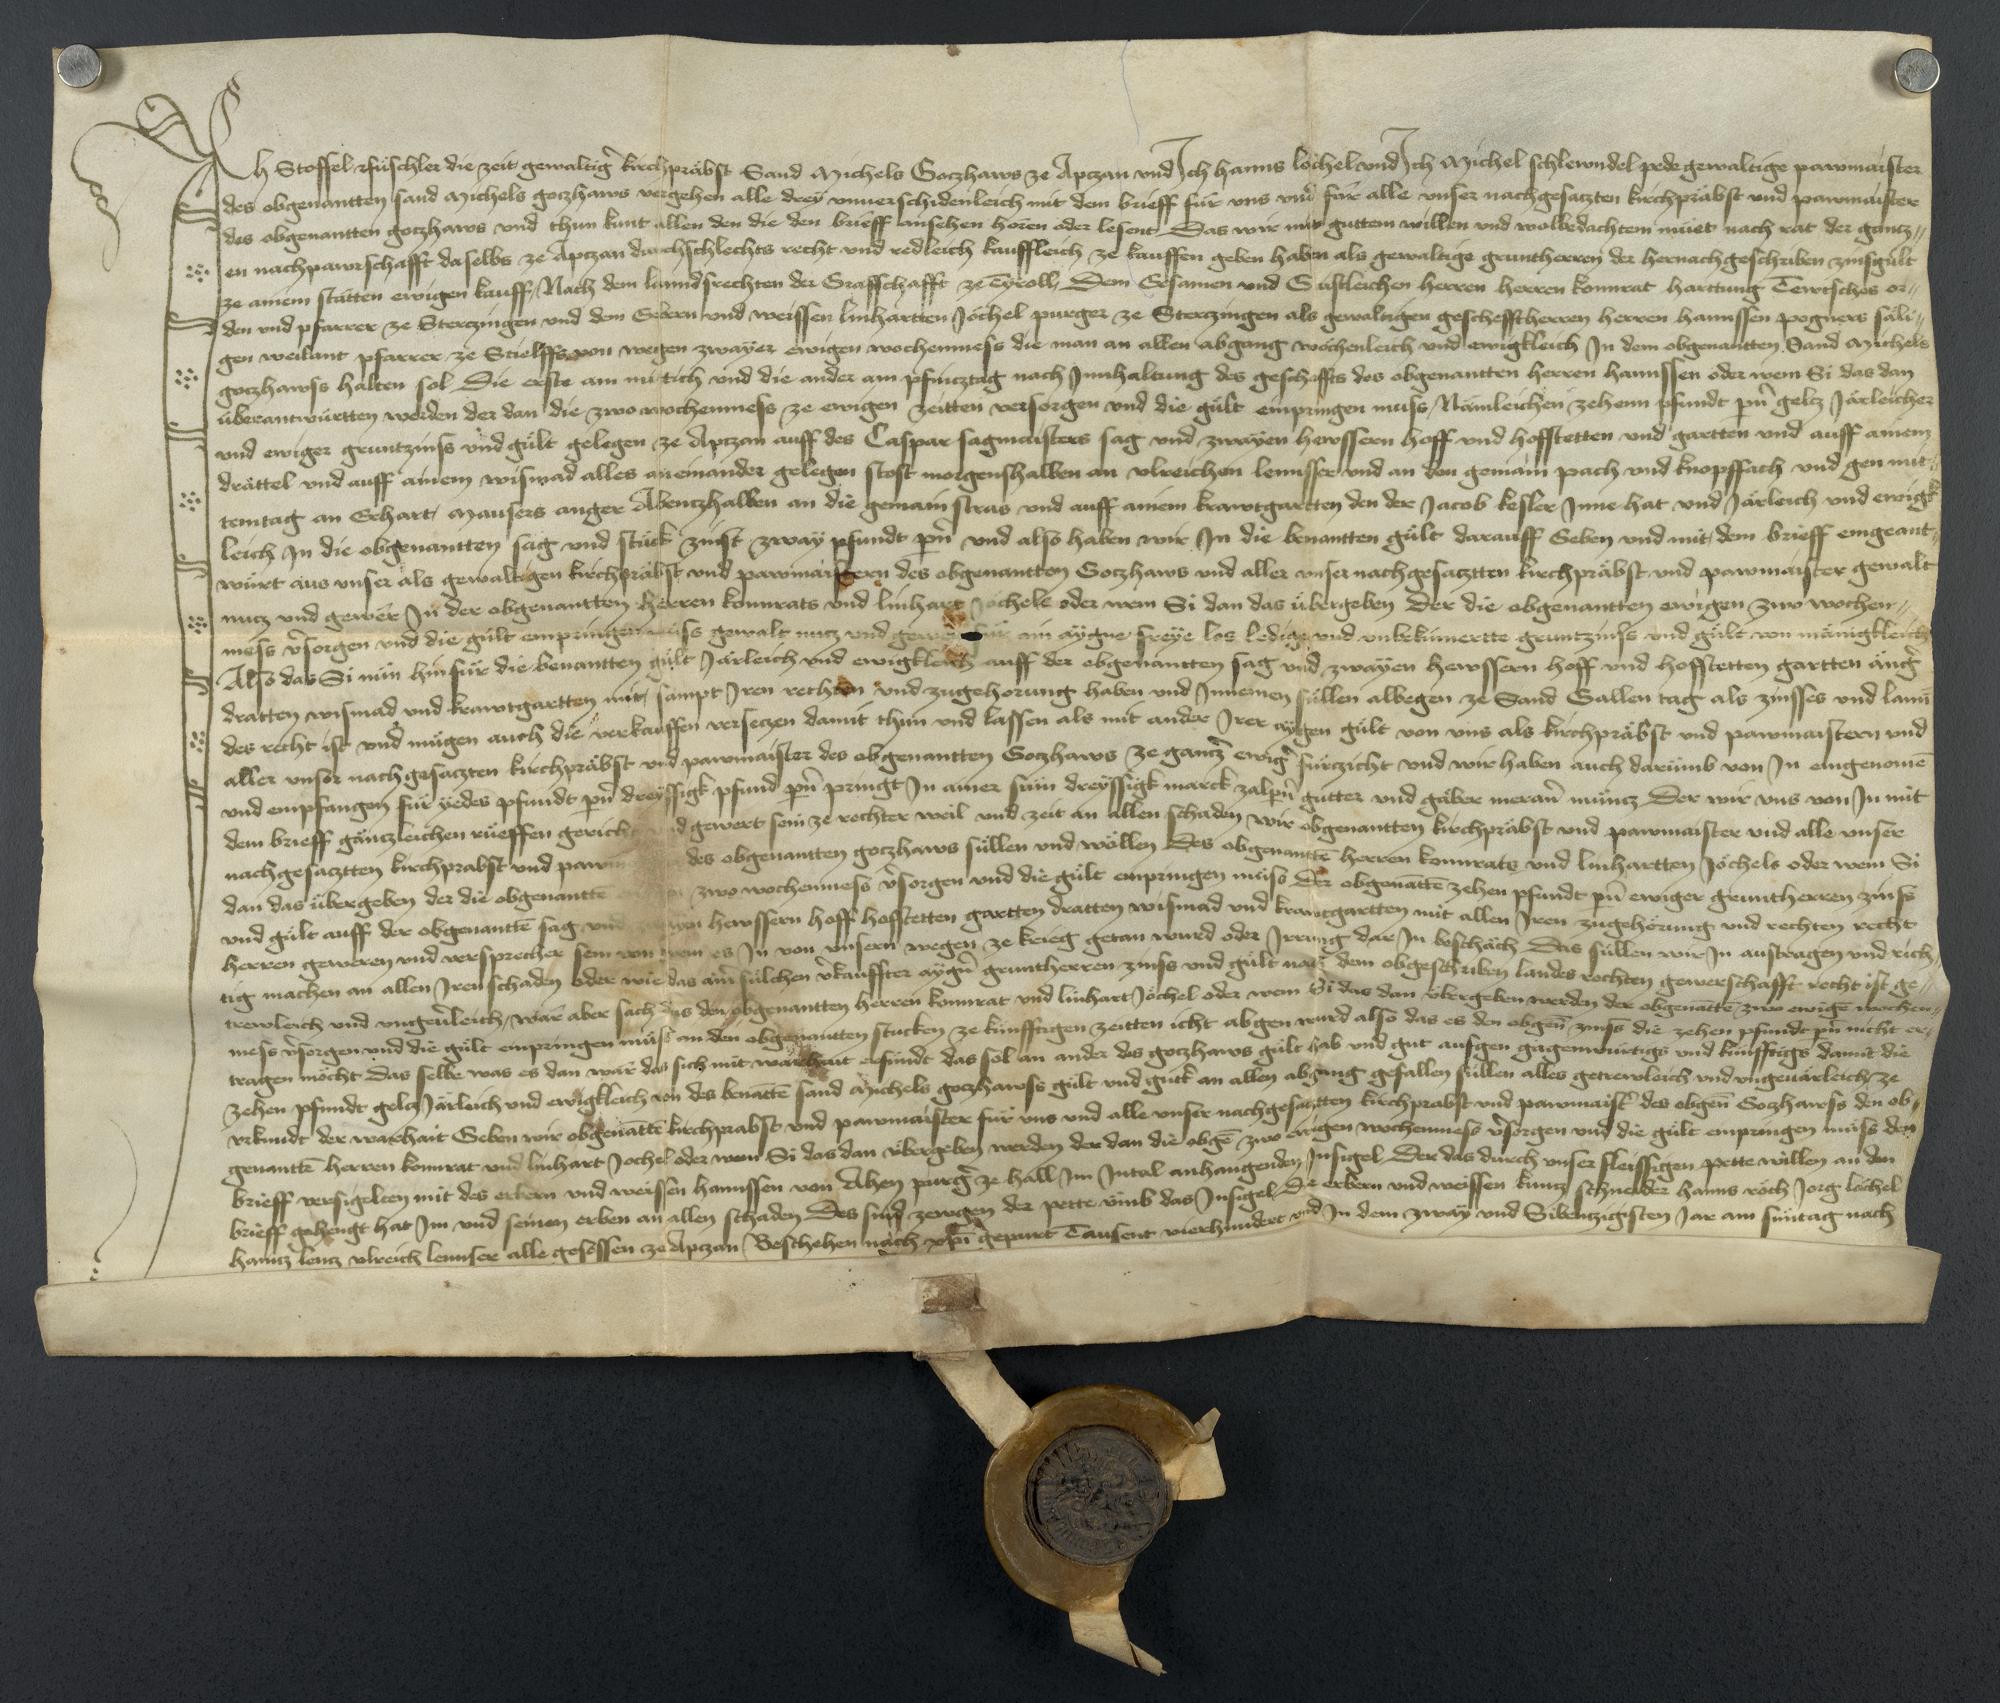 Ich Stoffel die zeit gewaltiger kirchpräbst Sand Michels Goczhaws ze Apczan und Ich Hanns löchel und Ich Michel schlewndel pede gewaltige pawmaister
des obgenantten sand Michels goczhaws vergehen alle drey unuerschidenleich mit dem brieff für uns und für alle unser nachgesaczten kirchpräbst und pawmaister
des obgenantten goczhaws und thun kunt allen den die den brieff ansehen hören oder lesent Das wir mit guttem willen und wolbedachtem müet nach rat der gancz//
en nachpawrschafft daselbs ze Apczan durchschlechts recht und redleich kauffleich ze kauffen geben haben als gewaltige gruntherren der hernachgeschriben zinsgült
ze ainem stätten ewigen kauff Nach dem lanndsrechten der Graffschafft ze Tyroll Dem Ersamen und Gaistleichen herren herren konnrat harttung Tewtsches or//
den und pfarrer ze Sterczingen und dem Erbern und weissen linhartten Jöchel purger ze Sterczingen als gewaltigen geschefftherren herren hannssen pogners säli//
gen weilant pfarrer ze Stielffs von wegen zwayer ewigen wochenmess die man an allen abgang wöchenleich und ewigkleich In dem obgenantten Sand Michels
goczhawss halten sol Die erste am mitich und die ander am pfincztag nach Innhaltung des geschäffts des obgenantten herren hannssen oder wem Si das dan
überantwürtten werden der dan die zwo wochenmess ze ewigen zeitten versorgen und die gült einpringen muss Nämleichen zehenn pfundt pñ gelcz Järleicher
und ewiger gruntzinss und gült gelegen ze Apczan auff des Caspar sagmaisters sag und zwayen hewssern hoff und hofstetten und gartten und auff ainem
drättel und auff ainem wismad alles aneinander gelegen stost morgenshalben an ulreichen lennsser und an den gemain pach und knopffach und gen mit//
temtag an Erhart Mausers anger Abenczhalben an die gemain stras und auff ainem krawtgartten den der Jacob kesler Inne hat und Järleich und ewigk
leich In die obgenantten sag und stück zinst zway pfundt pñ und also haben wir In die benantten gült darauff Geben und mit dem brieff eingeant//
würt aus unser als gewaltigen kirchpräbst und pawmaistern des obgenantten Goczhaws und aller unser nachgesacztten kirchpräbst und pawmaister gewalt
nucz und gewer In der obgenantten herren konnrats und linhart Jöchels oder wem Si dan das übergeben Der die obgenantten ewigen zwo wochen//
mess v̂sorgen und die gült einpringen muss gewalt nucz und gewer für ain aygne freye los ledige und unbekümertte gruntzinss und gült von mänigkleich
Also das Si nün hinfür die benantten gült Järleich und ewigkleich auff der obgenantten sag und zwayen hewssern hoff und hofstetten gartten änger
dratten wismad und krawtgartten mit sampt Iren rechten und zugehorung haben und Innemen süllen albegen ze Sand Gallen tag als zinsses und lann
des recht ist und mügen auch die verkauffen verseczen damit thun und lassen als mit ander Irer aygen gült von uns als kirchpräbst und pawmaistern und
aller unser nachgesaczten kirchpräbst und pawmaister des obgenantten Goczhaws ze gancz ewiger fürzicht und wir haben auch darumb von In eingenomē
und empfangen für yedes pfundt pñ dreyssigk pfund pñ pringt In ainer sum dreyssigk marck zalpñ gutter und gäber meraner müncz Der wir uns von In mit
dem brieff gänczleichen rüeffen gericht und gewert sein ze rechter weil und zeit an allen schaden wir obgenantten kirchpräbst und pawmaister und alle unser
nachgesacztten kirchprabst und des obgenantten goczhaws süllen und wöllen Des obgenantte herren konnrats und linhartten Jöchels oder wem Si
dan das übergeben der die obgenantte zwo wochenmess v̂sorgen und die gült einpringen muss Der obgenantte zehen pfundt pñ ewiger gruntherren zinss
und gült auff der obgenantte sag und hewssern hoff hofstetten gartten dratten wismad und krawtgartten mit allen Iren zugehörung und rechten recht
herren geweren und versprecher sein von wem es In von unsern wegen ze krieg getan wurd oder Irrung dar In beschäch Das süllen wir In austragen und rich//
tig machen an allen Iren schaden oder wie das ains sülchen v̂kaufften aygñ gruntherren zinss und gült nach dem obgeschriben landes rechten gewerschafft recht ist ge//
trewleich und ungeüleich wär aber sach das den obgenantten herren konnrat und linhart Jöchel oder wem Si das dan übergeben werden der obgenantte zwo ewige wochen//
mess v̂sorgen und die gült einpringen müss an den obgenantten stucken ze künfftigen zeitten icht abgen wurd also das es den obgeñ zinss die zehen pfundt pñ nicht er//
tragen möcht Das selbe was es dan wär das sich mit warhait erfundt das sol an ander des goczhaws gült hab und gut ausgen gagenwürtigs und künfftigs damit die
zehen pfundt gelcz Järleich und ewigkleich von des benantte sand Michels goczhawss gült und güt an allen abgang gefallen süllen alles getrewleich und ungeuärleich ze
urkundt der warhait Geben wir obgenantte kirchprabst und pawmaister für uns und alle unser nachgesaztten kirchprabst und pawmaister des obgeñ Goczhawss den ob//
genantte herren konnrat und linhart Jochel oder wem Si das dan übergeben werden der dan die obge zwo ewigen wochenmess v̂sorgen und die gült einpringen müss den
brieff versigelten mit des erbern und weissen hannssen von Ahen purger ze hall Im Intal anhangenden Insigel Der das durch unser fleissigen pette willen an den
brieff gehengt hat Im und seinen erben an allen schaden Des sind zewgen der pette umb das Insigel Die erbern und weissen kuncz schneider hanns röch Jorg löchel
haincz lencz ulreich lennser alle gesessen ze Apczan Beschehen nach xpi gepurt Tausent vierhundert und In dem zway und Sibenczigisten Jar am suntag nach